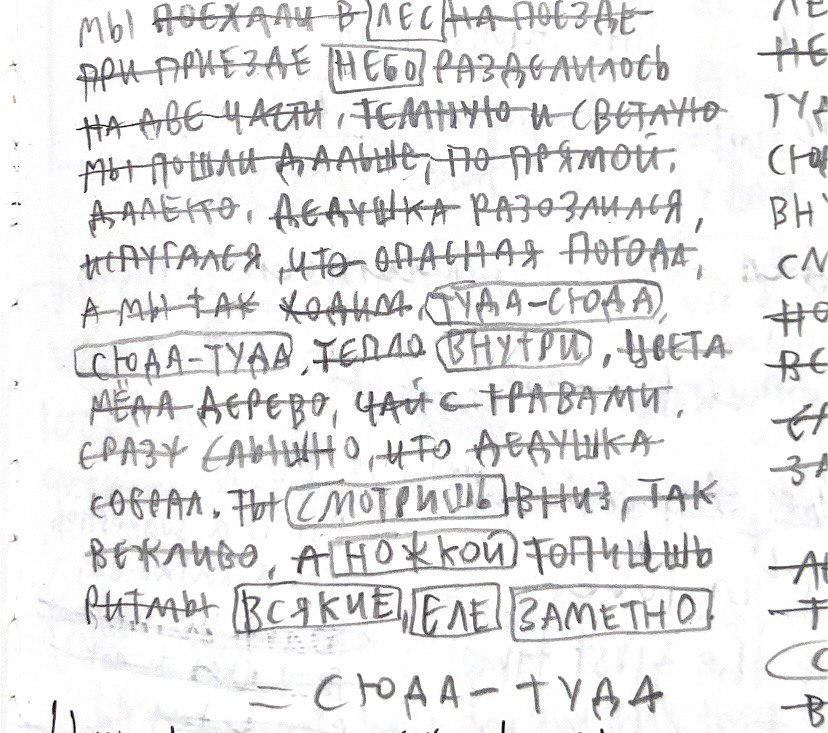 МЫ ПОЕХАЛИ В ЛЕС НА ПОЕЗДЕ
ПРИ ПРИЕЗДЕ НЕБО РАЗДЕЛИЛОСЬ
НА ДВЕ ЧАСТИ, ТЕМНУЮ И СВЕТЛУЮ
МЫ ПОШЛИ ДАЛЬШЕ, ПО ПРЯМОЙ.
ДАЛЕКО. ДЕДУШКА РАЗОЗЛИЛСЯ,
ИСПУГАЛСЯ, ЧТО ОПАСНАЯ ПОГОДА,
А МЫ ТАК ХОДИМ, ТУДА-СЮДА,
СЮДА-ТУДА, ТЕПЛО ВНУТРИ, ЦВЕТА
МЁДА ДЕРЕВО, ЧАЙ С ТРАВАМИ,
СРАЗУ СЛЫШНО, ЧТО ДЕДУШКА
СОБРАЛ. ТЫ СМОТРИШЬ ВНИЗ, ТАК
ВЕЖЛИВО, А НОЖКОЙ ТОПИШЬ
РИТМЫ ВСЯКИЕ, ЕЛЕ ЗАМЕТНО.
= СЮДА-ТУДА